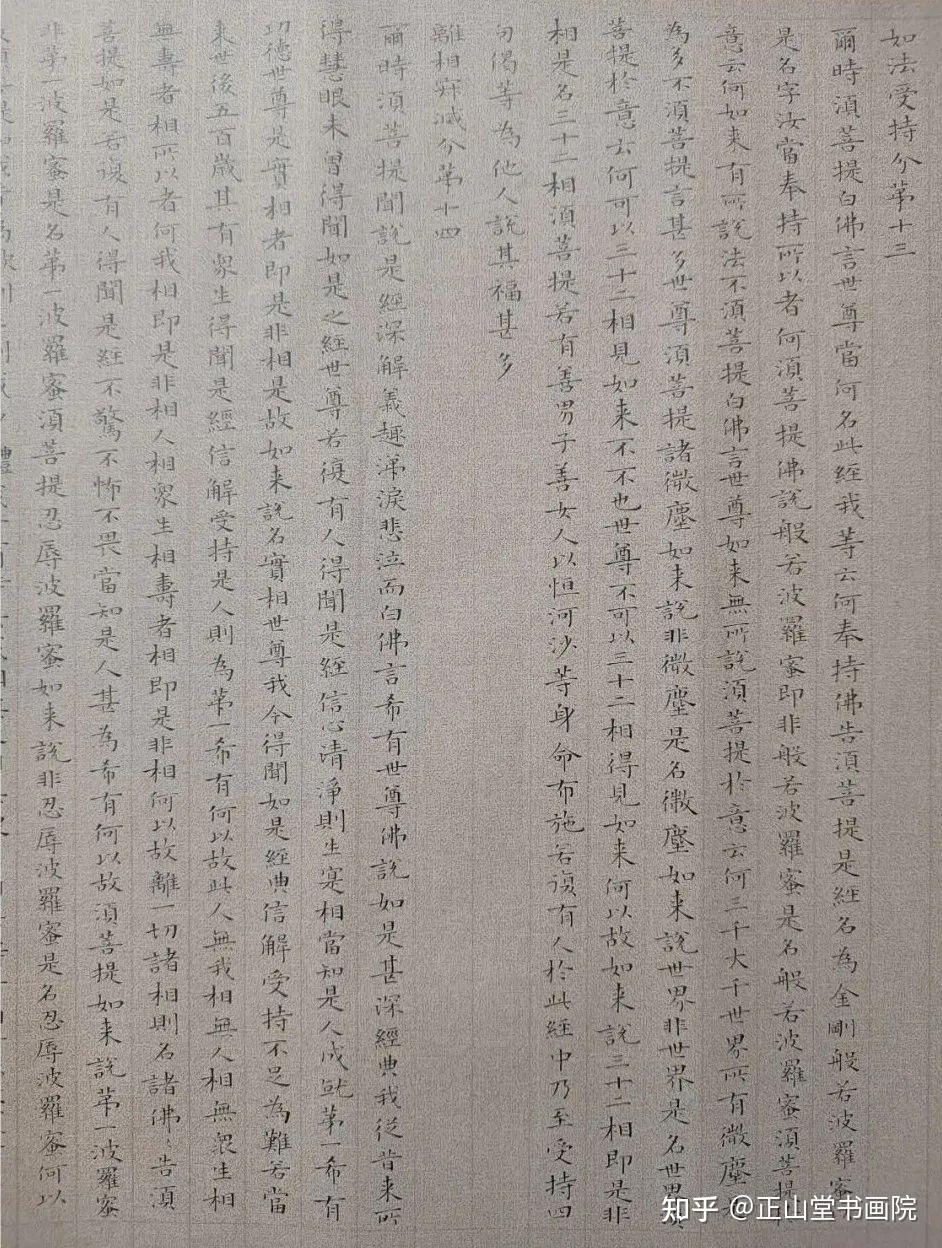 如法受持分第十三
爾時須菩提白佛言世尊當何名此經我等云何奉持佛告須菩提是經名為金剛般若波羅蜜以
是名字汝當奉持所以者何須菩提佛說般若波羅蜜即非般若波羅蜜是名般若波羅蜜須菩提於
意云何如来有所說法不須菩提白佛言世尊如来無所說須菩提於意云何三千大千世界所有微塵是
為多不須菩提言甚多世尊須菩提諸微塵如来說非微塵是名微塵如来說世界非世界是名世界須
菩提於意云何可以三十二相見如来不不也世尊不可以三十二相得見如来何以故如来說三十二相即是非
相是名三十二相須菩提若有善男子善女人以恒河沙等身命布施若復有人於此經中乃至受持四
句偈等為他人說其福甚多
離相寂滅分第十四
爾時須菩提聞說是經深解義趣涕淚悲泣而白佛言希有世尊佛說如是甚深經典我從昔来所
得慧眼未曾得聞如是之經世尊若復有人得聞是經信心清淨則生實相當知是人成就第一希有
功德世尊是實相者即是非相是故如来說名實相世尊我今得聞如是經典信解受持不足為難若當
来世後五百歲其有眾生得聞是經信解受持是人則為第一希有何以故此人無我相無人相無眾生相
無壽者相所以者何我相即是非相人相眾生相壽者相即是非相何以故離一切諸相則名諸佛〻告須
菩提如是若復有人得聞是經不驚不怖不畏當知是人甚為希有何以故須菩提如来說第一波羅蜜
非第一波羅蜜是名第一波羅蜜須菩提忍辱波羅蜜如来說非忍辱波羅蜜是名忍辱波羅蜜何以
知乎 @正山堂书画院